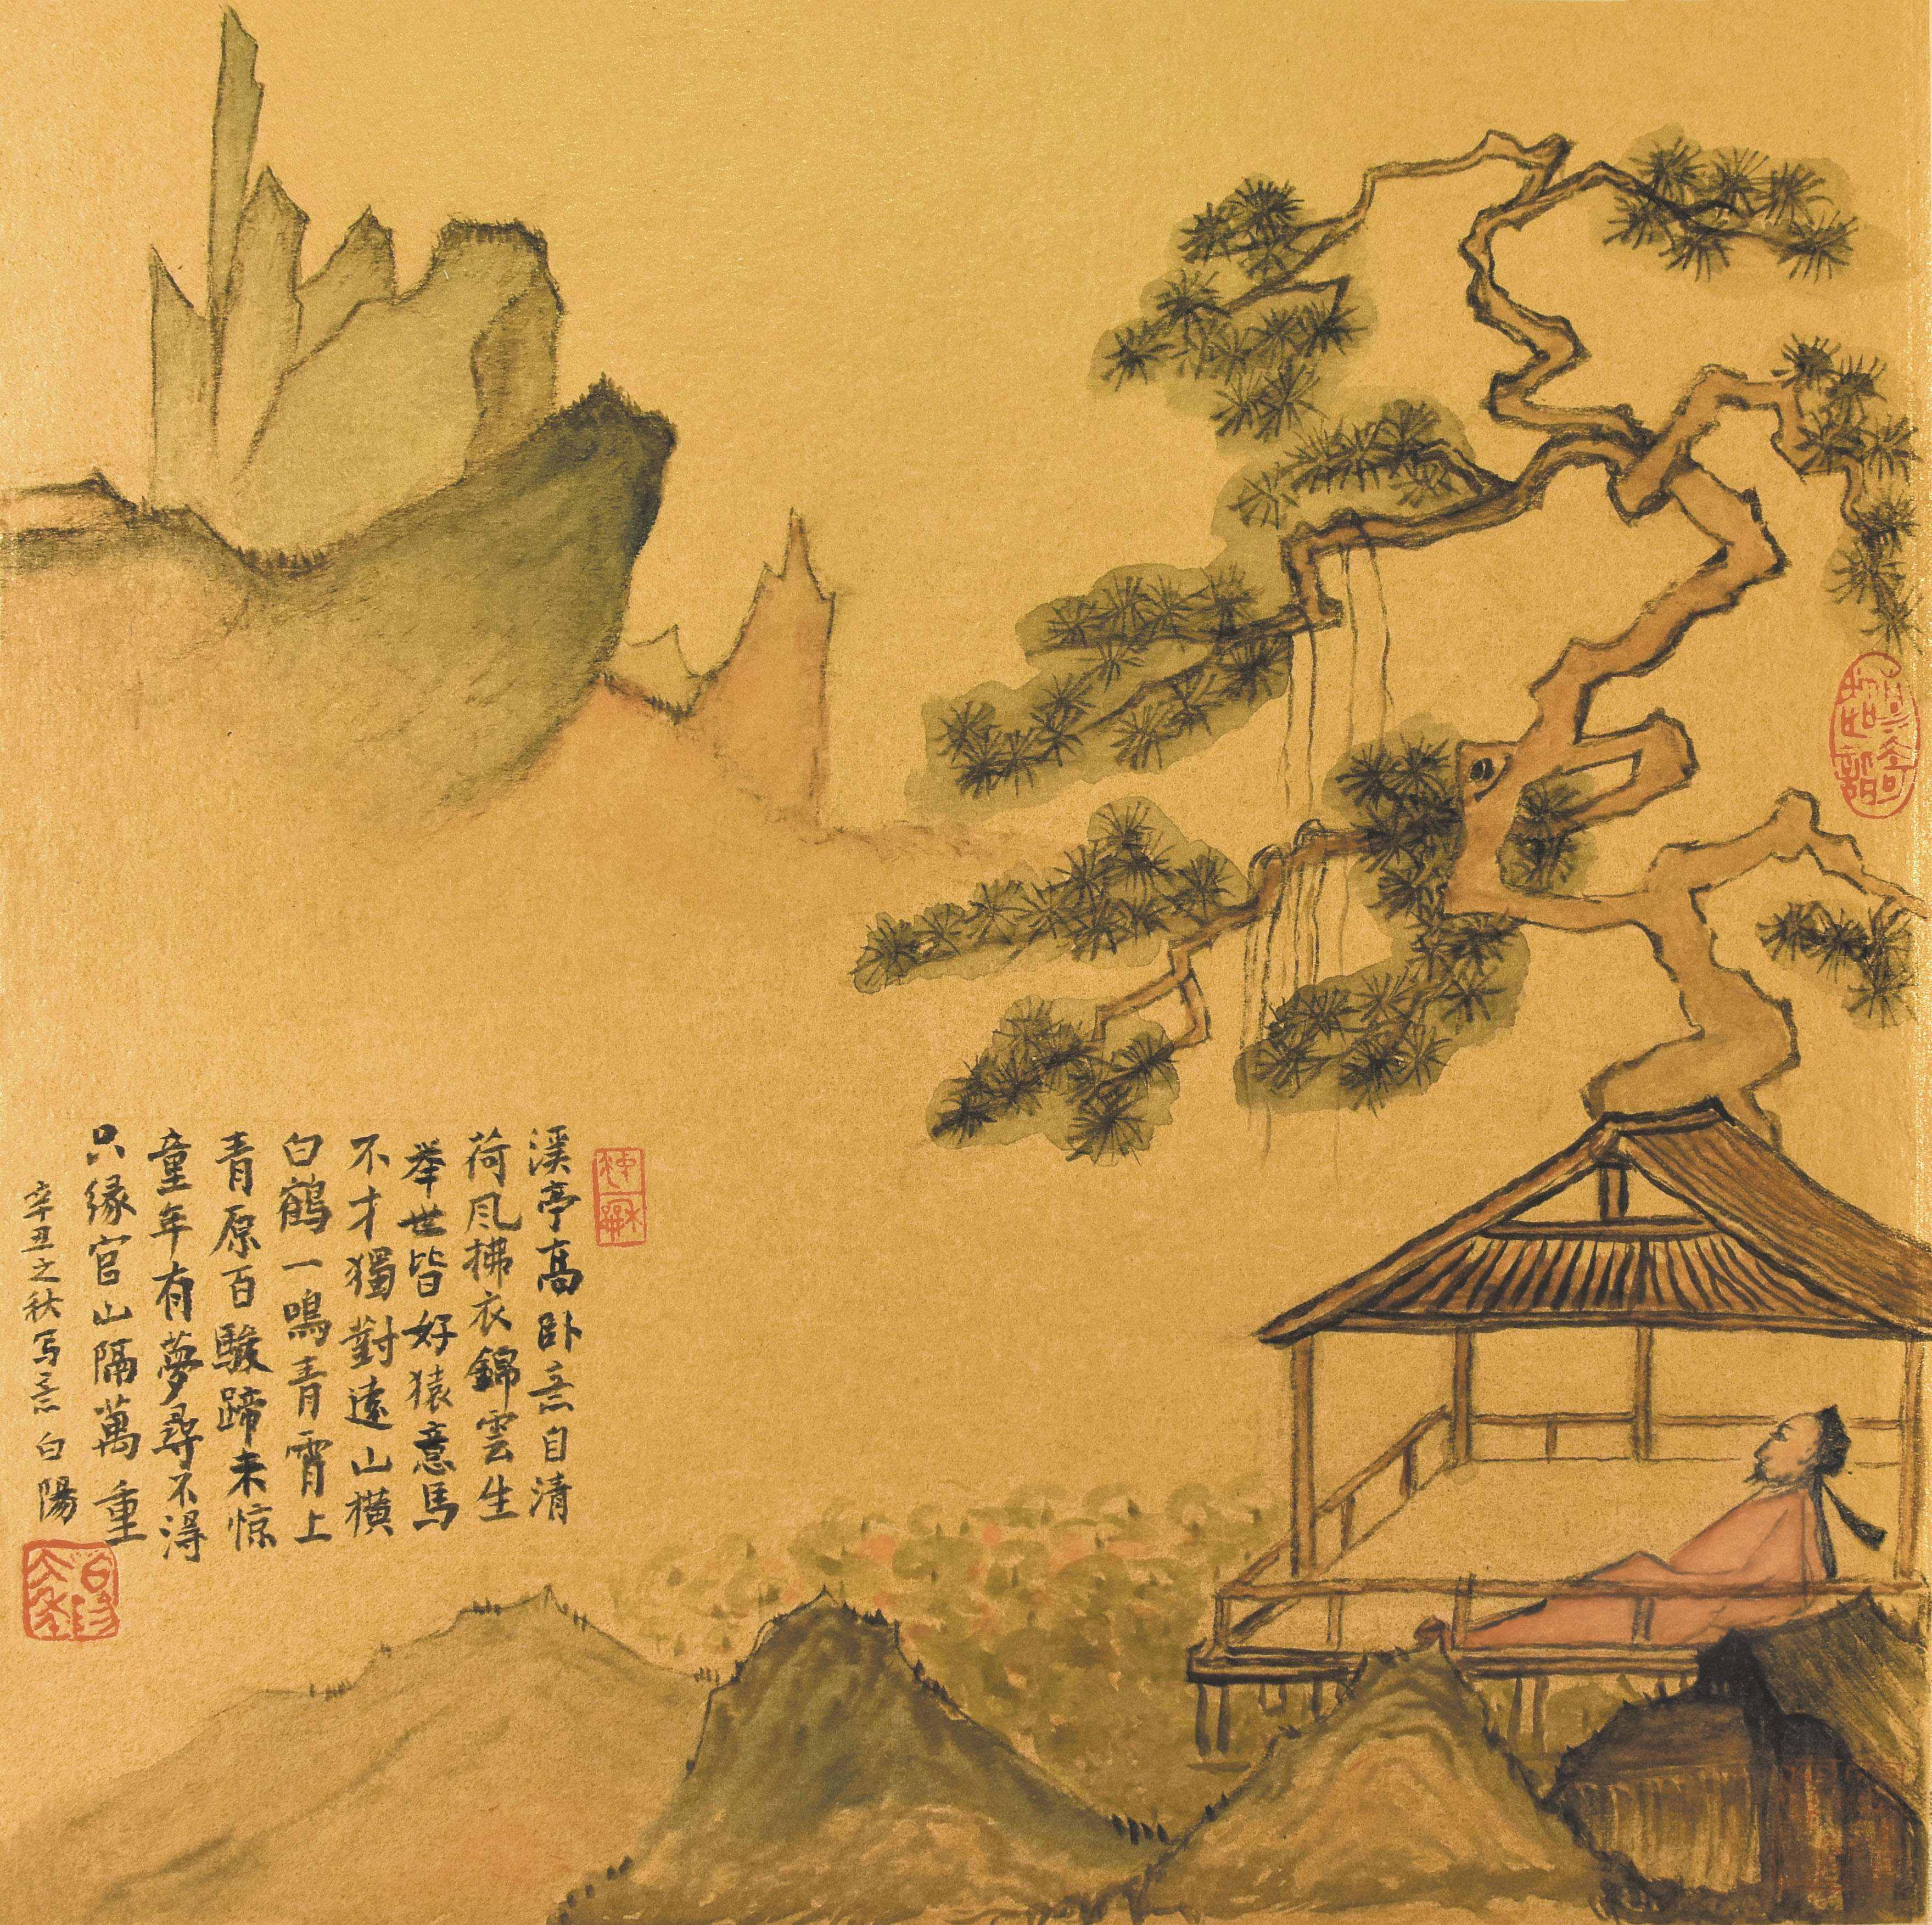 溪亭高卧意自清
荷风拂衣錦雲生
举世皆好猿意馬
不才獨對遠山橫
白鶴一鳴青霄上
青原百駿蹄未惊
童年有夢尋不得
只缘官山隔萬重
辛丑之秋写意白陽